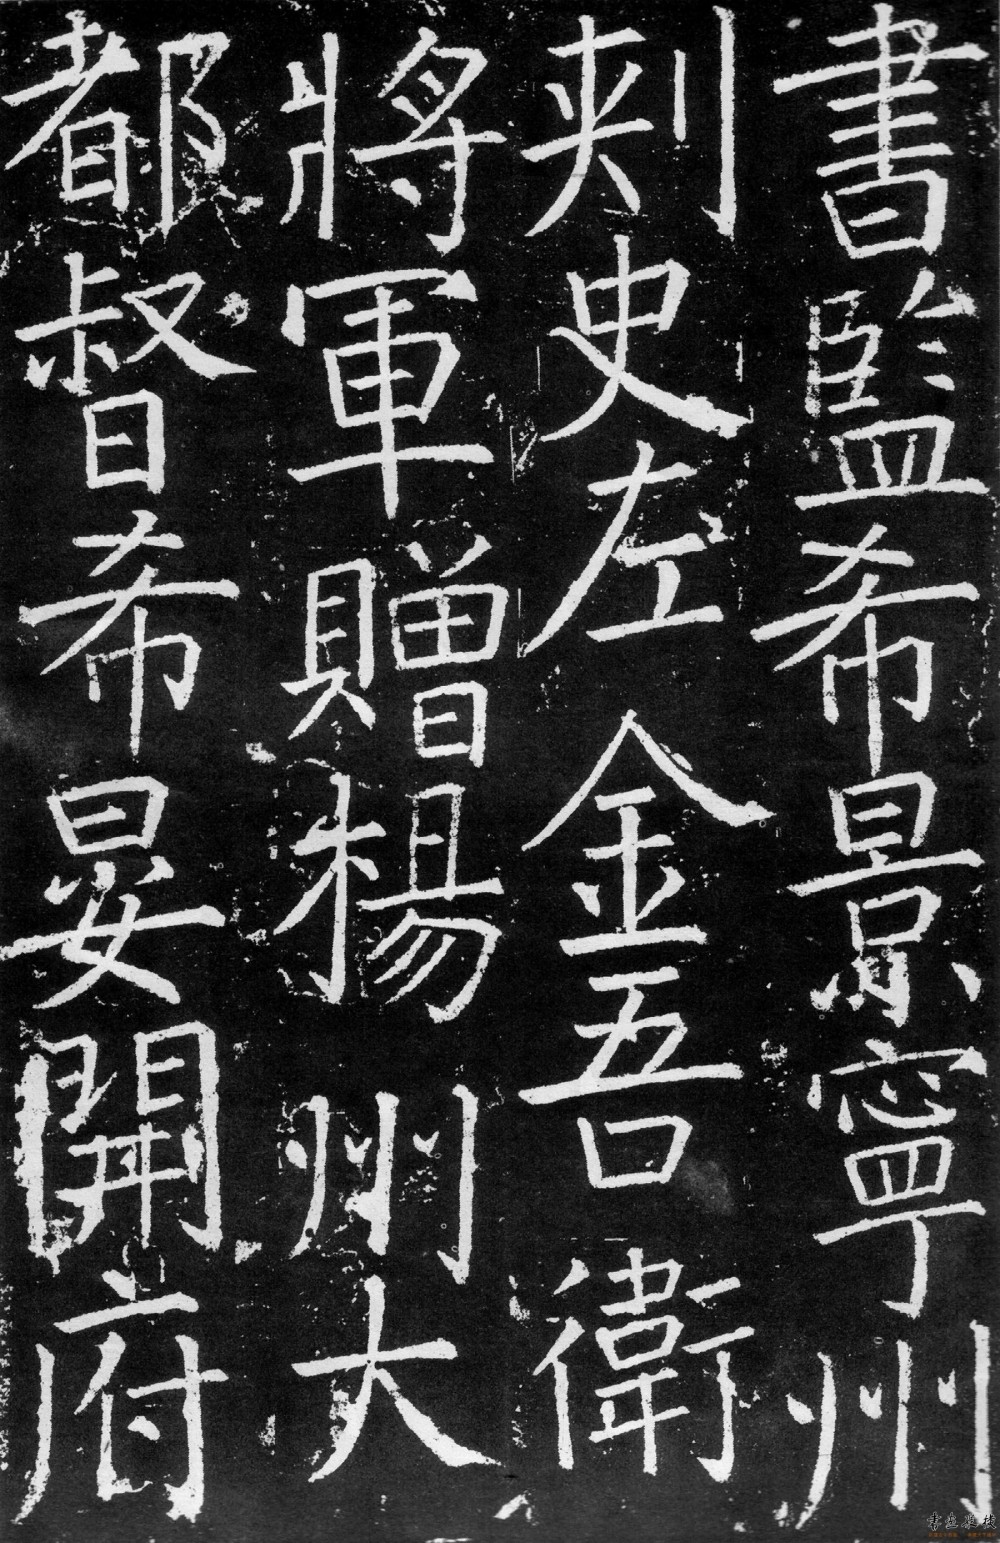 書監希景寧州
刾史左金吾衛
將軍贈楊州大
都督希晏開府